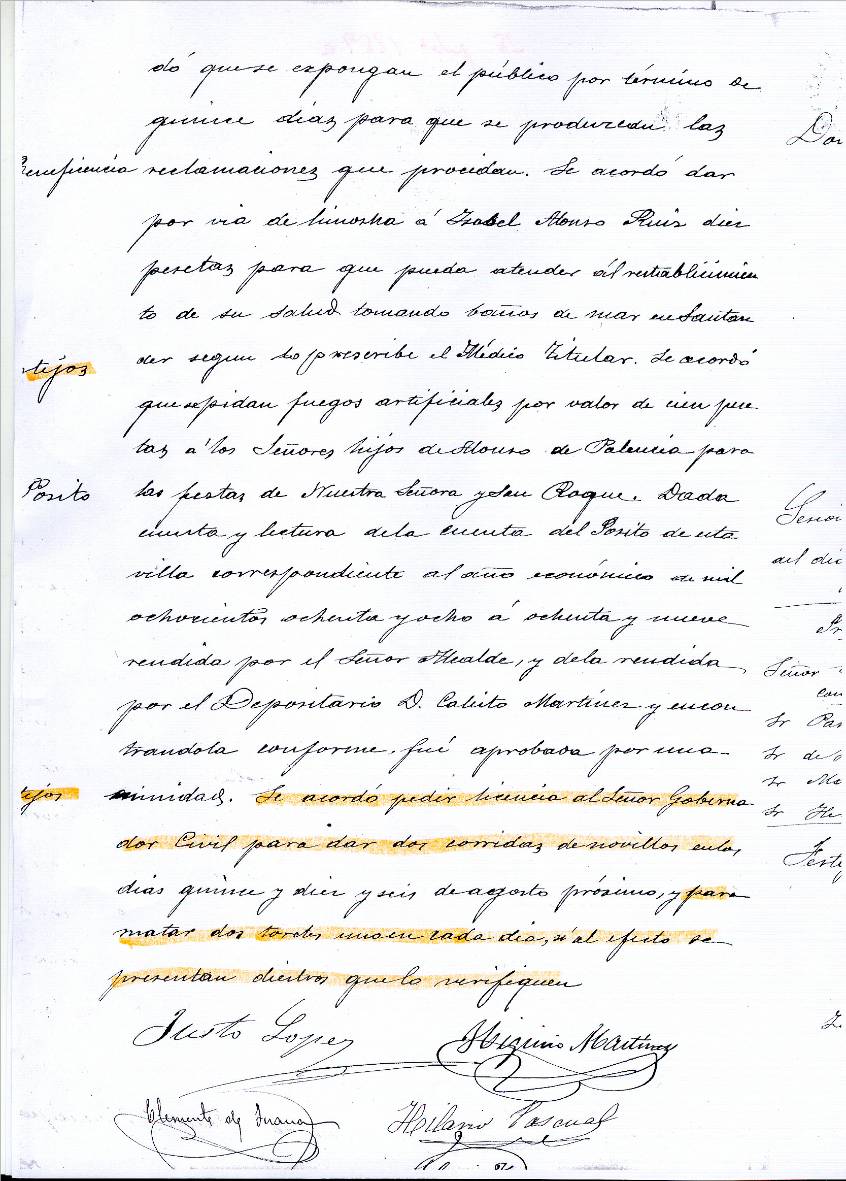 dó que se expongan el público por término de
quince dias para que se produzcan las
Beneficencia reclamaciones que procidan. Se acordó dar
por via de limosna á Isabel Alonso Ruiz diez
pesetas para que pueda atender al restablicimien
to de su salud tomando baños de mar en Santan
der segun lo prescribe el Médico Titular. Se acordó
tejos
que se pidan fuegos artificiales por valor de cien pese-
tas á los Señores hijos de Alonso de Palencia para
Posito las fiestas de Nuestra Señora y San Roque. Dada
cuenta y lectura dela cuenta del Posito de esta
villa correspondiente al año económico de mil
ochocientos ochenta y ocho á ochenta y nueve
rendida por el Señor Alcalde, y dela rendida
por el Depositario D. Calisto Martínez y encon
trandola conforme fué aprobada por una-
tejos nimidad. Se acordó pedir licencia al Señor Goberna-
dor Civil para dar dos corridas de novillos en los
dias quince y diez y seis de agosto próximo, y para
matar dos toretes uno en cada dia, si al efecto se
presentan diestros que lo verifiquen
Justo Lopez Higinio Martínez
Clemente de Juana Hilario Pascual
Señor